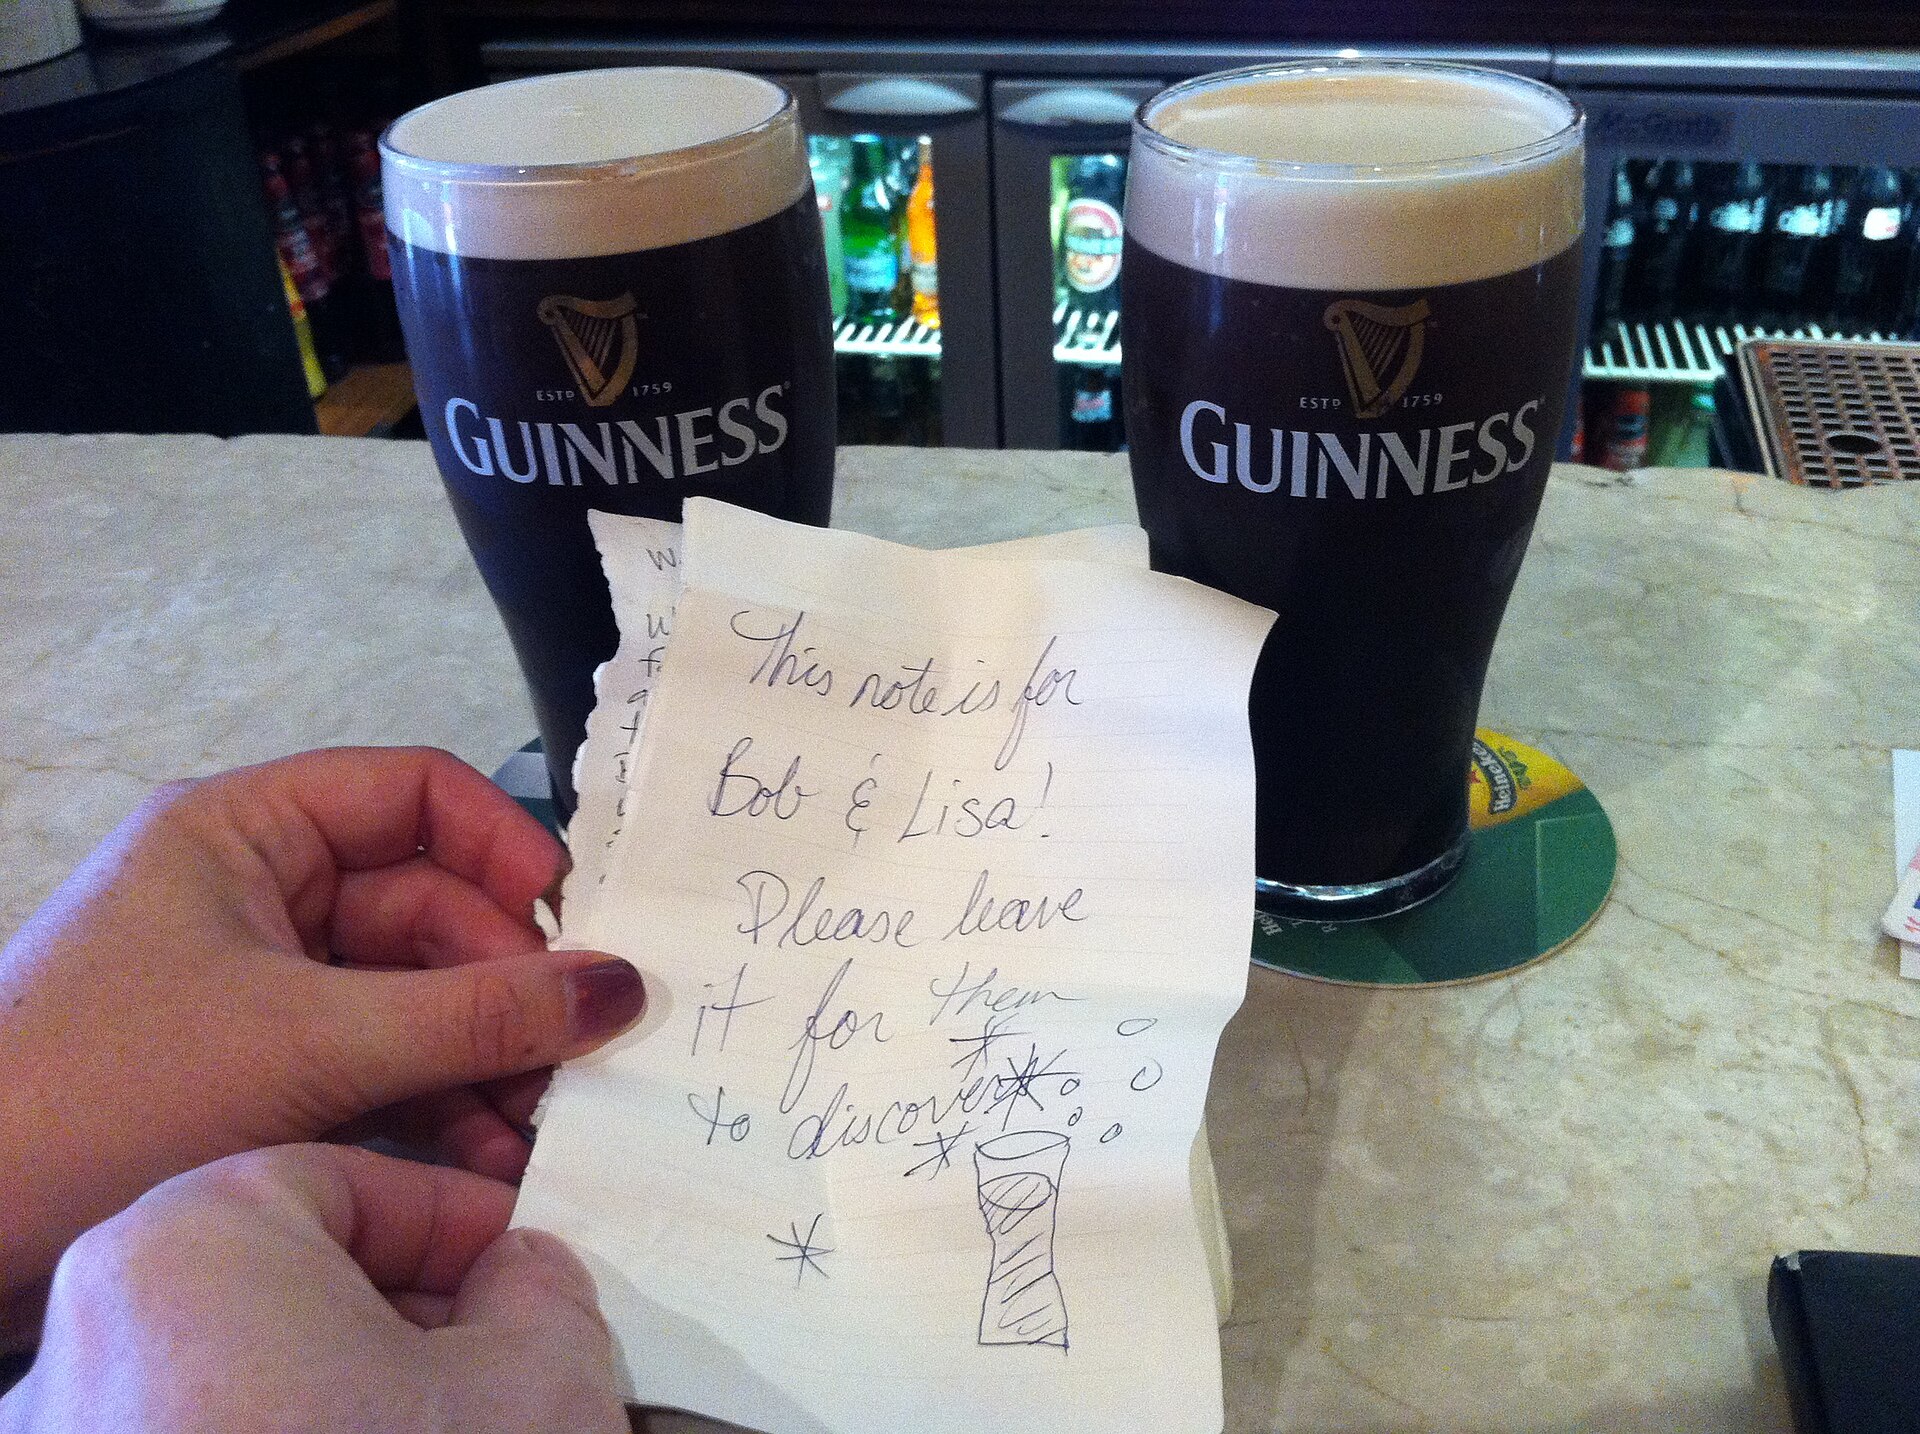 ESTD 1759
GUINNESS
ESTD 1759
GUINNESS
This note is for
Bob & Lisa!
Please leave
it for them
to discover
Heineken